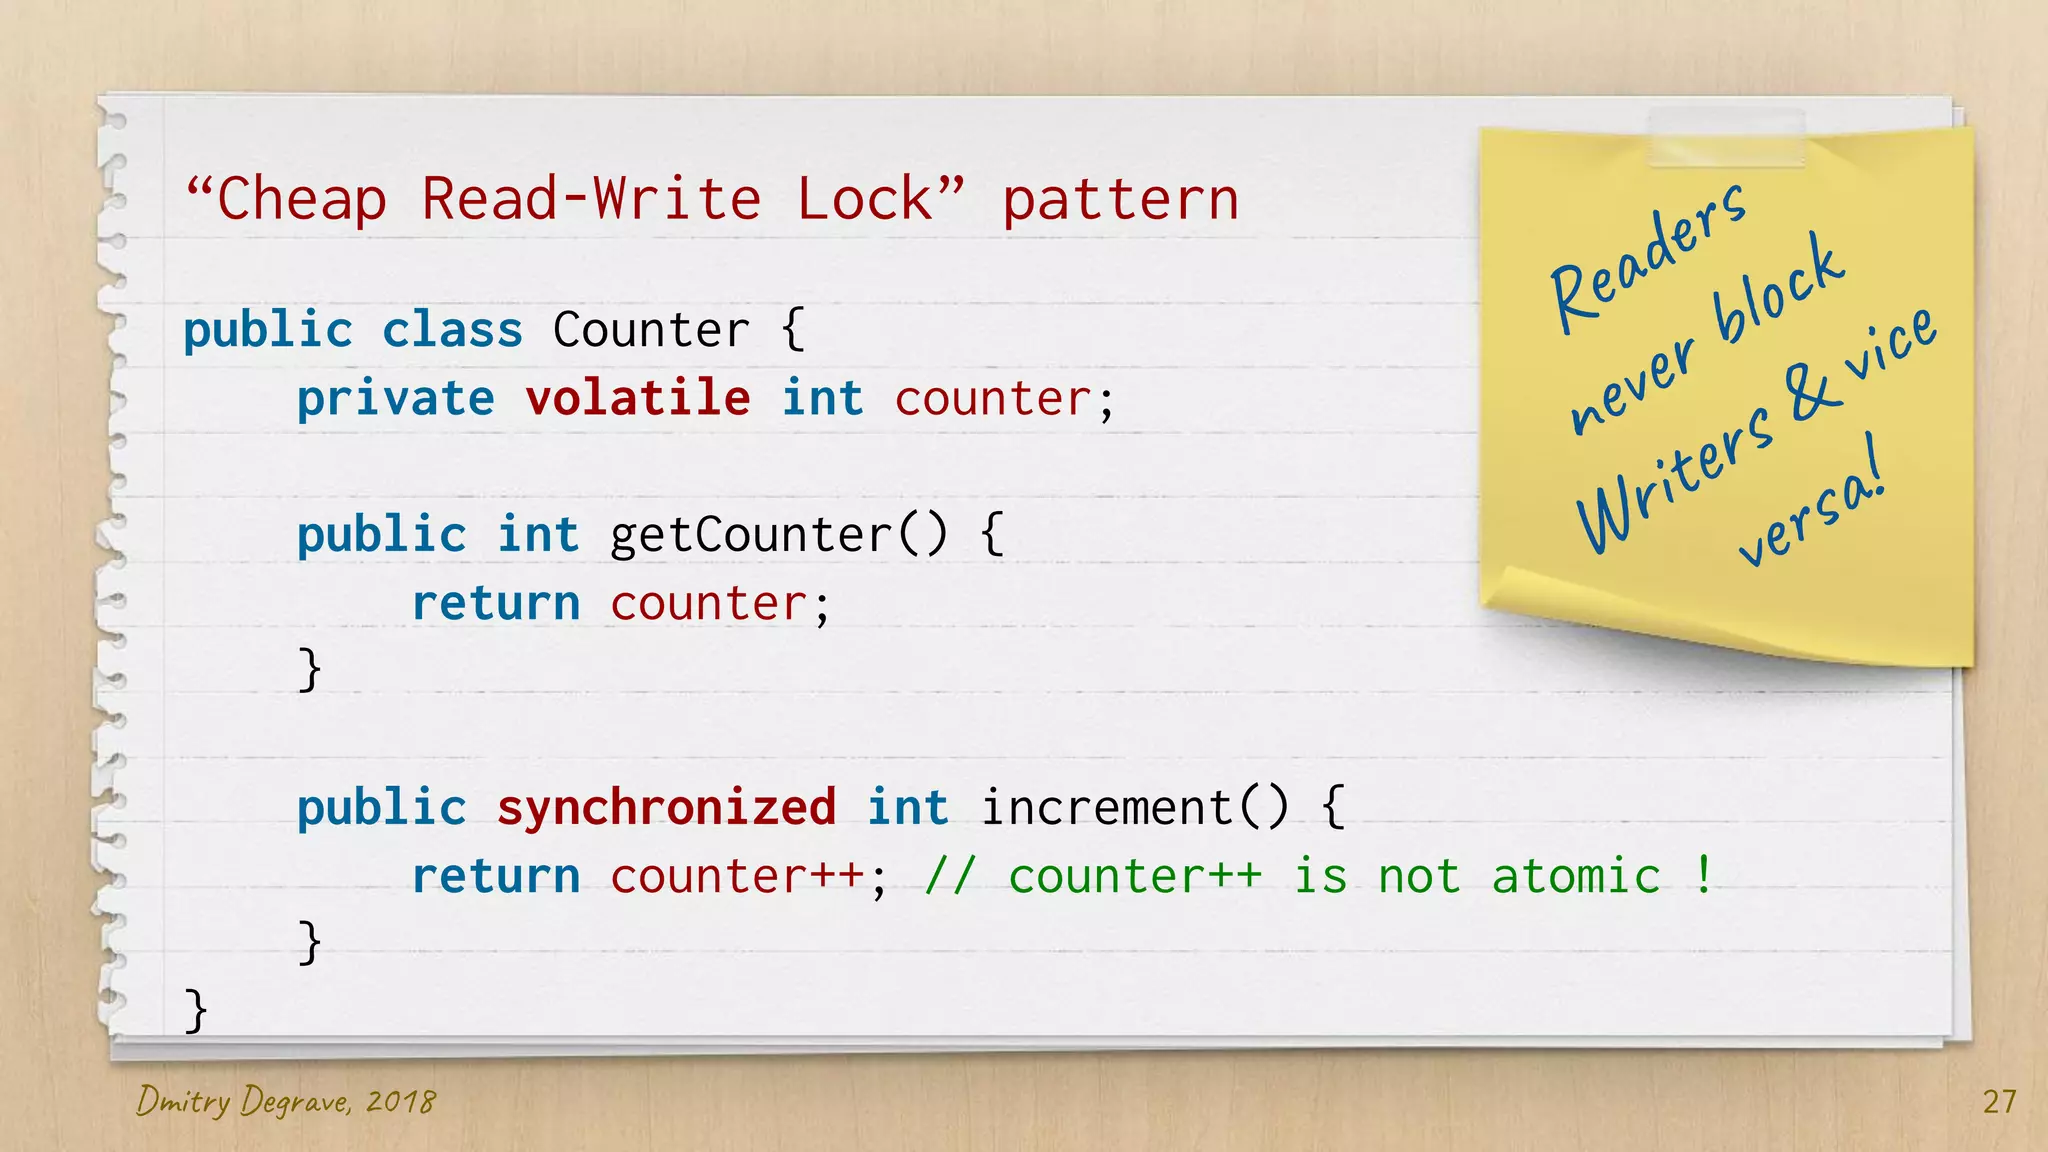 “Cheap Read-Write Lock” pattern
public class Counter {
    private volatile int counter;
    public int getCounter() {
        return counter;
    }
    public synchronized int increment() {
        return counter++; // counter++ is not atomic !
    }
}
Readers
never block
Writers & vice
versa!
Dmitry Degrave, 2018
27